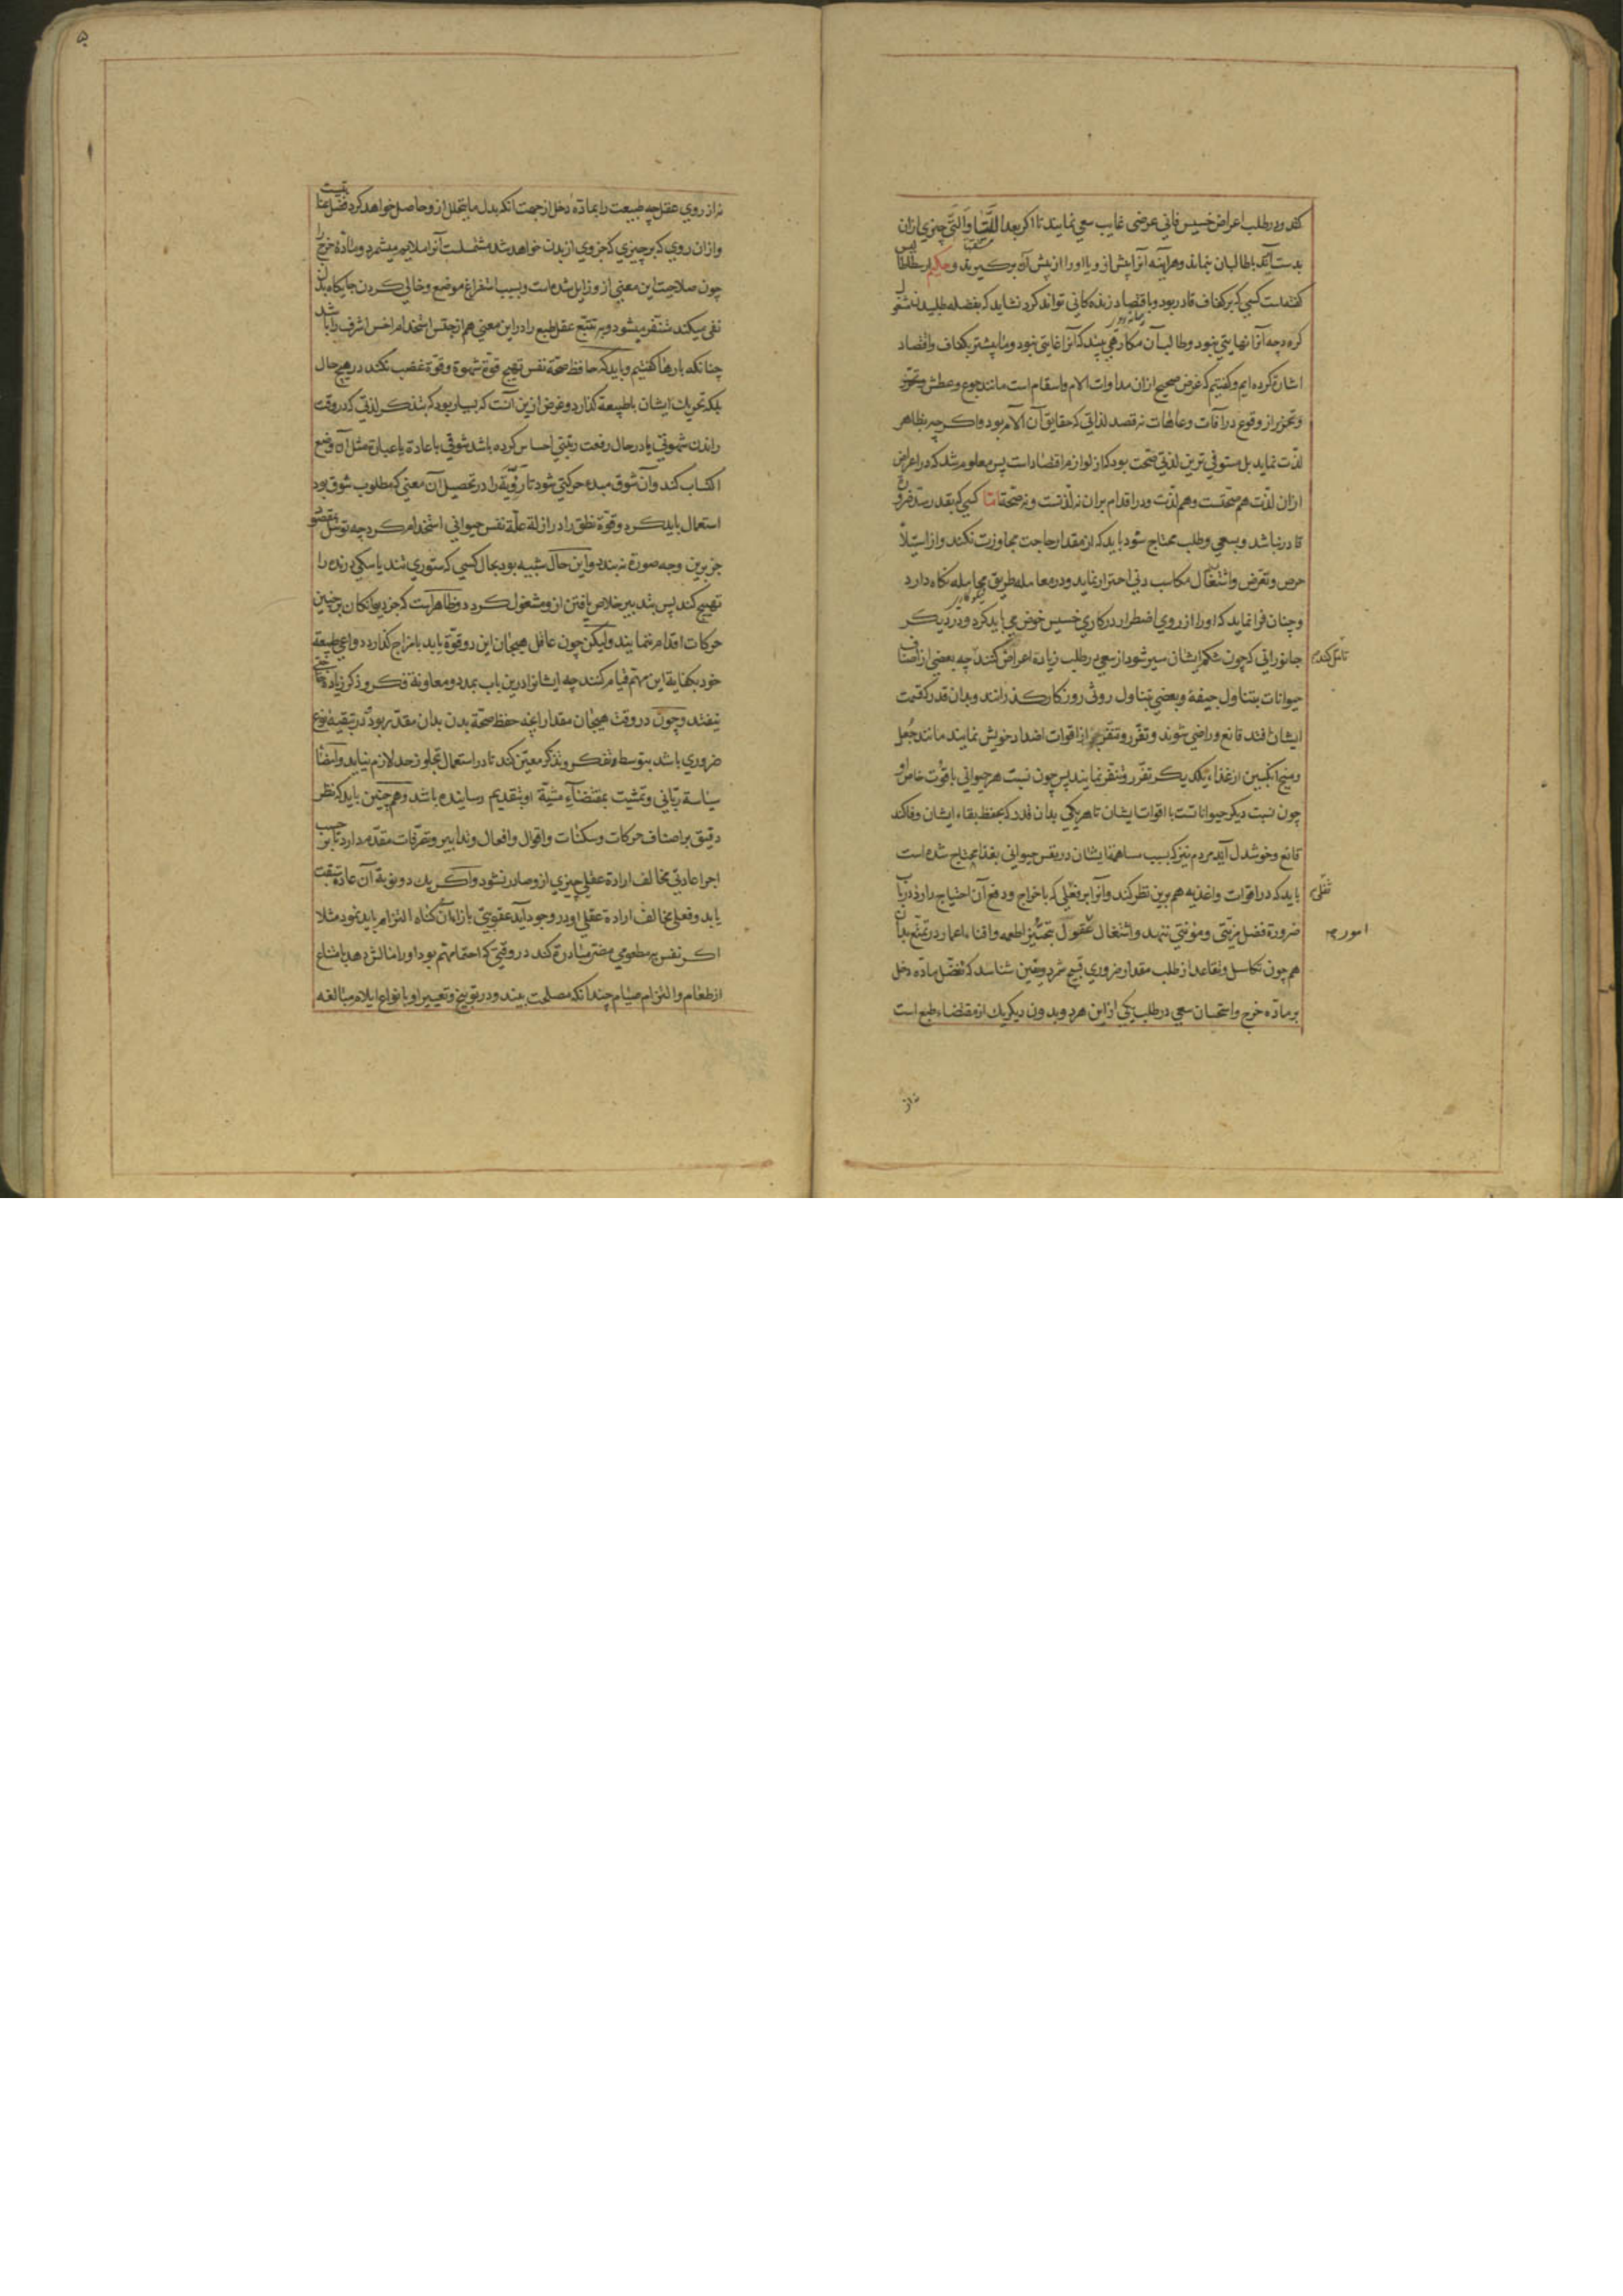 کنند و در طلب اعراض خسیس فانی عرضی غایب سعی نمایند تا اگر بعد اللتیا والتی چیزی ازان
بدست آید با طالبان نماند و هرآینه آنرا پیش ازو یا او را از پیش آن برگیرند و حکیم ارسطاطالیس
گفته است کسی که بر کفاف قادر بود و باقتصاد زندگانی تواند کرد نشاید که بفضله طلبیدن مشغول
گردد چه آنرا نهایتی نبود و طالب آن مکارهی بیند که آنرا غایتی نبود و ما پیشتر بکفاف و اقتصاد
اشارة کرده ایم و گفتیم که غرض صحیح ازان مداوات آلام و اسقام است مانند جوع و عطش
و تحرز از وقوع در آفات و عاهات نه قصد لذاتی که حقایق آن آلام بود و اگرچه بظاهر
لذت نماید بل مستوفی ترین لذتی صحت بود که از لوازم اقتصاد است پس معلوم شد که در اعراض
ازان لذت هم صحتست و هم لذت و در اقدام بران نه لذتست و نه صحة اما کسی که بقدر
قادر نباشد و بسعی و طلب محتاج شود باید که از مقدار حاجت مجاوزت نکند و از استیلا
حرص و تعرض و اشتغال مکاسب دنی احتراز نماید و در معامله طریق مجامله نگاه دارد
و چنان فرا نماید که او را از روی اضطرار در کاری خسیس خوض می باید کرد و در دیگر
جانورانی که چون شکم ایشان سیر شود از سعی در طلب زیادة اعراض کنند چه بعضی از اصناف
تامل کند
حیوانات بتناول جیفه و بعضی بتناول روثی روزگار گذرانند و بدان قدر که قسمت
ایشان فتد قانع و راضی شوند و تقزز و تنفر از اقوات اضداد خویش نمایند مانند جعل
و منج انگبین از غذاء یکدیگر تقزز و تنفر نمایند پس چون نسبت هر حیوانی با قوت خاص او
چون نسبت دیگر حیواناتست با اقوات ایشان تا هر یکی بدان قدر که بحفظ بقاء ایشان وفا کند
قانع و خوشدل آید مردم نیز که بسبب مساهمة ایشان در نفس حیوانی بغذا محتاج شده است
باید که در اقوات و اغذیه هم برین نظر کند و آنرا بر ثفلی که باخراج و دفع آن احتیاج دارد در باب
ثفلی
ضرورة فضل مزیتی و مؤنتی ننهد و اشتغال عقول بتخیر اطعمه و افناء اعمار در تمتع بدان
امور
هم چون تکاسل و تقاعد از طلب مقدار ضروری قبیح شمرد و یقین شناسد که تفضل ماده دخل
بر ماده خرج و استحسان سعی در طلب یکی ازین هر دو بدون دیگر یک از مقتضاء طبع است
نه از
۵
نه از روی عقل چه طبیعت را بماده دخل از جهت انکه بدل ما یتحلل ازو حاصل خواهد کرد فضل عنایتیست
و ازان روی که بر چیزی که جزوی از بدن خواهد شد مشتملست آنرا ملایم میشمرد و مادة خرج را
چون صلاحیت این معنی ازو زایل شده است و بسبب استفراغ موضع و خالی کردن جایگاه بدل
نفی میکند متنفر میشود و به تتبع عقل طبع را دراین معنی هم از جنس استخدام اخس اشرف را باشد
چنانکه بارها گفتیم و باید که حافظ صحة نفس تهییج قوة شهوة و قوة غضب نکند در هیچ حال
بلکه تحریک ایشان با طبیعة گذارد و غرض ازین آنست که بسیار بود که بتذکر لذتی که در وقت
راندن شهوتی یا در حال رفعت رتبتی احساس کرده باشد شوقی باعادة مثل آن وضع
اکتساب کند و آن شوق مبدء حرکتی شود تا رویة را در تحصیل آن معنی که مطلوب شوق بود
استعمال باید کرد و قوة نطق را در ازلة علة نفس حیوانی استخدام کرد چه توسل بمقصود
جز برین وجه صورة نبندد و این حال شبیه بود بحال کسی که ستوری تند یا سگی درنده را
تهییج کند پس بتدبیر خلاص یافتن ازو مشغول گردد و ظاهرست که جز دیوانگان بر چنین
حرکات اقدام ننمایند ولیکن چون عاقل هیجان این دو قوة باید با مزاج گذارد دواعی طبیعة
خود بکفایة این مهم قیام کنند چه ایشانرا درین باب بمدد و معاونة فکر و ذکر زیادة حاجتی
نیفتد و چون در وقت هیجان مقدار آنچه حفظ صحة بدن بدان مقدر بود و در تبقیه نوع
ضروری باشد بتوسط تفکر و تذکر معین کند تا در استعمال تجاوز حد لازم نیاید و امضاء
سیاسة ربانی و تمشیت بمقتضاء مشیة او بتقدیم رسانیده باشد و هم چنین باید که نظر
دقیق بر اصناف حرکات و سکنات و اقوال و افعال و تدابیر و تصرفات مقدم دارد تا بر حسب
اجراء عادتی مخالف ارادة عقلی چیزی ازو صادر نشود و اگر یک دو نوبة آن عادة سبقت
یابد و فعلی مخالف ارادة عقلی او در وجود آید عقوبتی بازاء آن گناه التزام باید نمود مثلا
اگر نفس به مطعومی مضر مبادرة کند در وقتی که احتما مهم بود او را مالش دهد بامتناع
از طعام و التزام صیام چندانکه مصلحت بیند و در توبیخ و تعییر او بانواع ایلام مبالغه